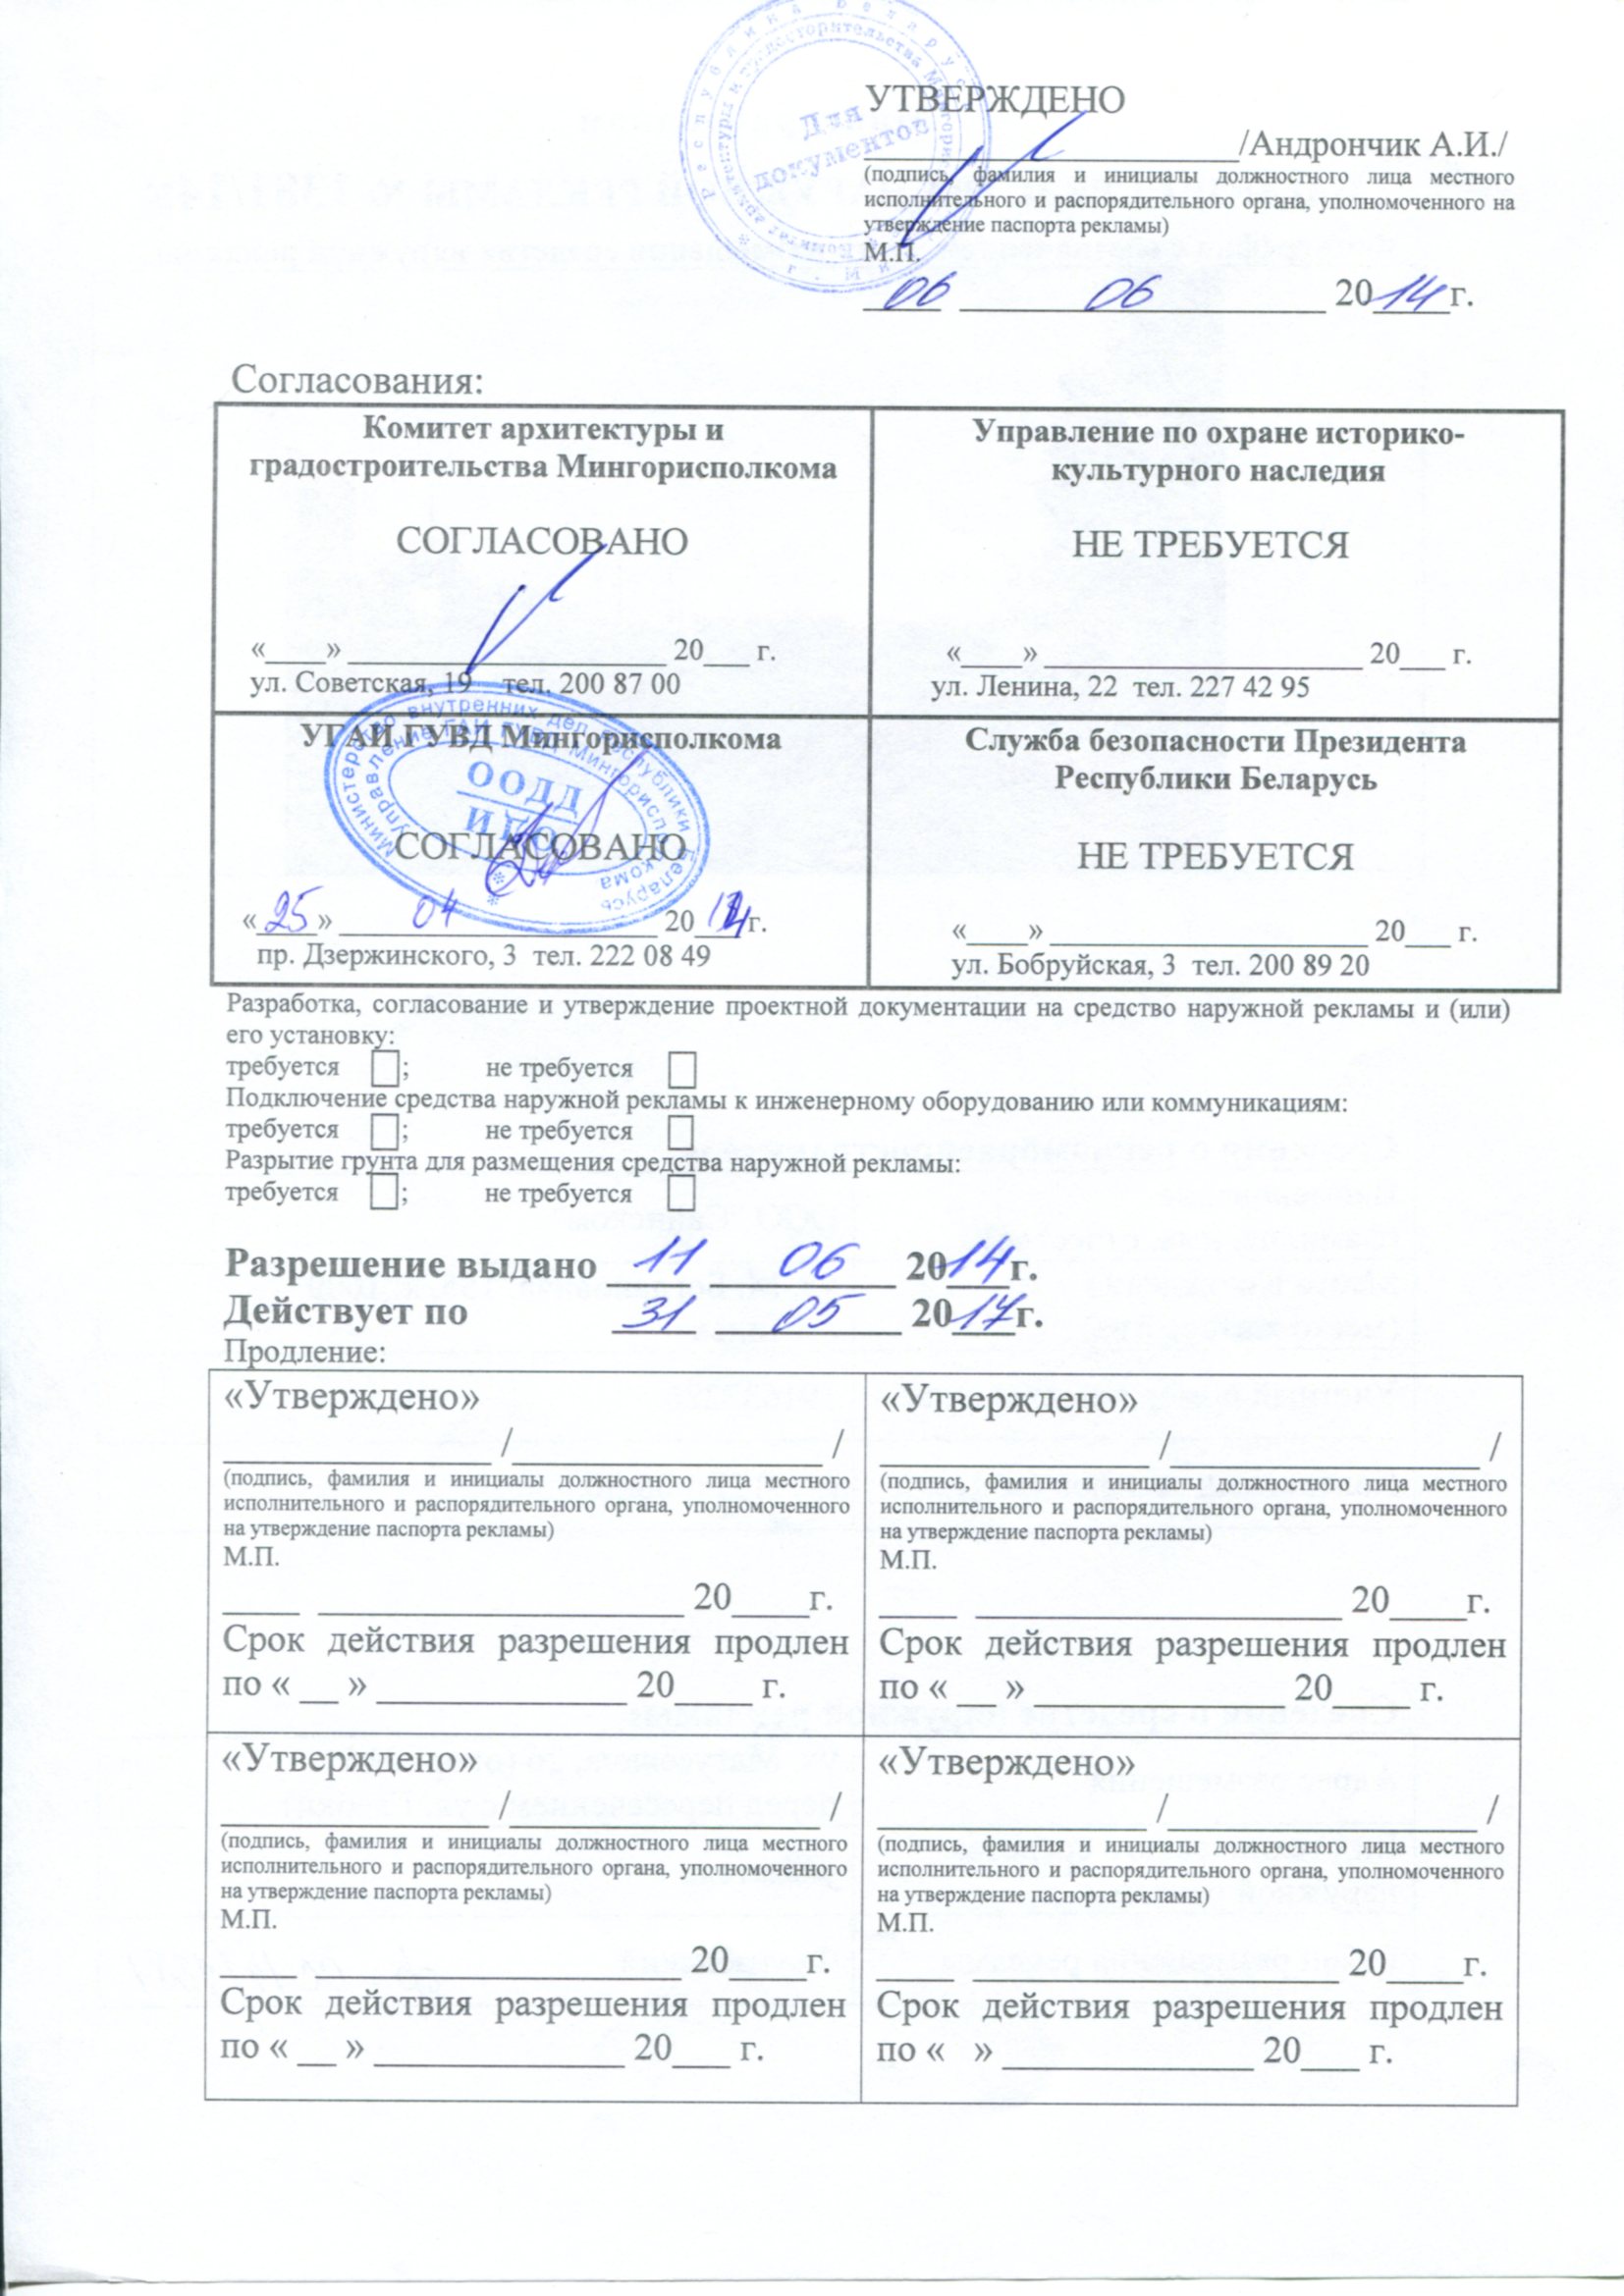 УТВЕРЖДЕНО
____________________/Андрончик А.И./
(подпись, фамилия и инициалы должностного лица местного
исполнительного и распорядительного органа, уполномоченного на
утверждение паспорта рекламы)
М.П.
06 06 2014г.
Для
документов
Согласования:
Комитет архитектуры и
градостроительства Мингорисполкома
СОГЛАСОВАНО
«____» ____________________ 20___ г.
ул. Советская, 19 тел. 200 87 00
Управление по охране историко-
культурного наследия
НЕ ТРЕБУЕТСЯ
«____» ____________________ 20___ г.
ул. Ленина, 22 тел. 227 42 95
УГАИ ГУВД Мингорисполкома
Министерство внутренних дел Республики Беларусь
Управление ГАИ ГУВД Мингорисполкома
ООДД
СОГЛАСОВАНО
«25» 04 2014г.
пр. Дзержинского, 3 тел. 222 08 49
Служба безопасности Президента
Республики Беларусь
НЕ ТРЕБУЕТСЯ
«____» ____________________ 20___ г.
ул. Бобруйская, 3 тел. 200 89 20
Разработка, согласование и утверждение проектной документации на средство наружной рекламы и (или)
его установку:
требуется ; не требуется
Подключение средства наружной рекламы к инженерному оборудованию или коммуникациям:
требуется ; не требуется
Разрытие грунта для размещения средства наружной рекламы:
требуется ; не требуется
Разрешение выдано 11 06 2014г.
Действует по 31 05 2017г.
Продление:
«Утверждено»
______________/________________ /
(подпись, фамилия и инициалы должностного лица местного
исполнительного и распорядительного органа, уполномоченного
на утверждение паспорта рекламы)
М.П.
____ ___________________ 20____г.
Срок действия разрешения продлен
по « __ » _____________ 20____ г.
«Утверждено»
______________/________________ /
(подпись, фамилия и инициалы должностного лица местного
исполнительного и распорядительного органа, уполномоченного
на утверждение паспорта рекламы)
М.П.
____ ___________________ 20____г.
Срок действия разрешения продлен
по « __ » _____________ 20____ г.
«Утверждено»
______________/________________ /
(подпись, фамилия и инициалы должностного лица местного
исполнительного и распорядительного органа, уполномоченного
на утверждение паспорта рекламы)
М.П.
____ ___________________ 20____г.
Срок действия разрешения продлен
по « __ » _____________ 20___ г.
«Утверждено»
______________/________________ /
(подпись, фамилия и инициалы должностного лица местного
исполнительного и распорядительного органа, уполномоченного
на утверждение паспорта рекламы)
М.П.
____ ___________________ 20____г.
Срок действия разрешения продлен
по « » _____________ 20___ г.